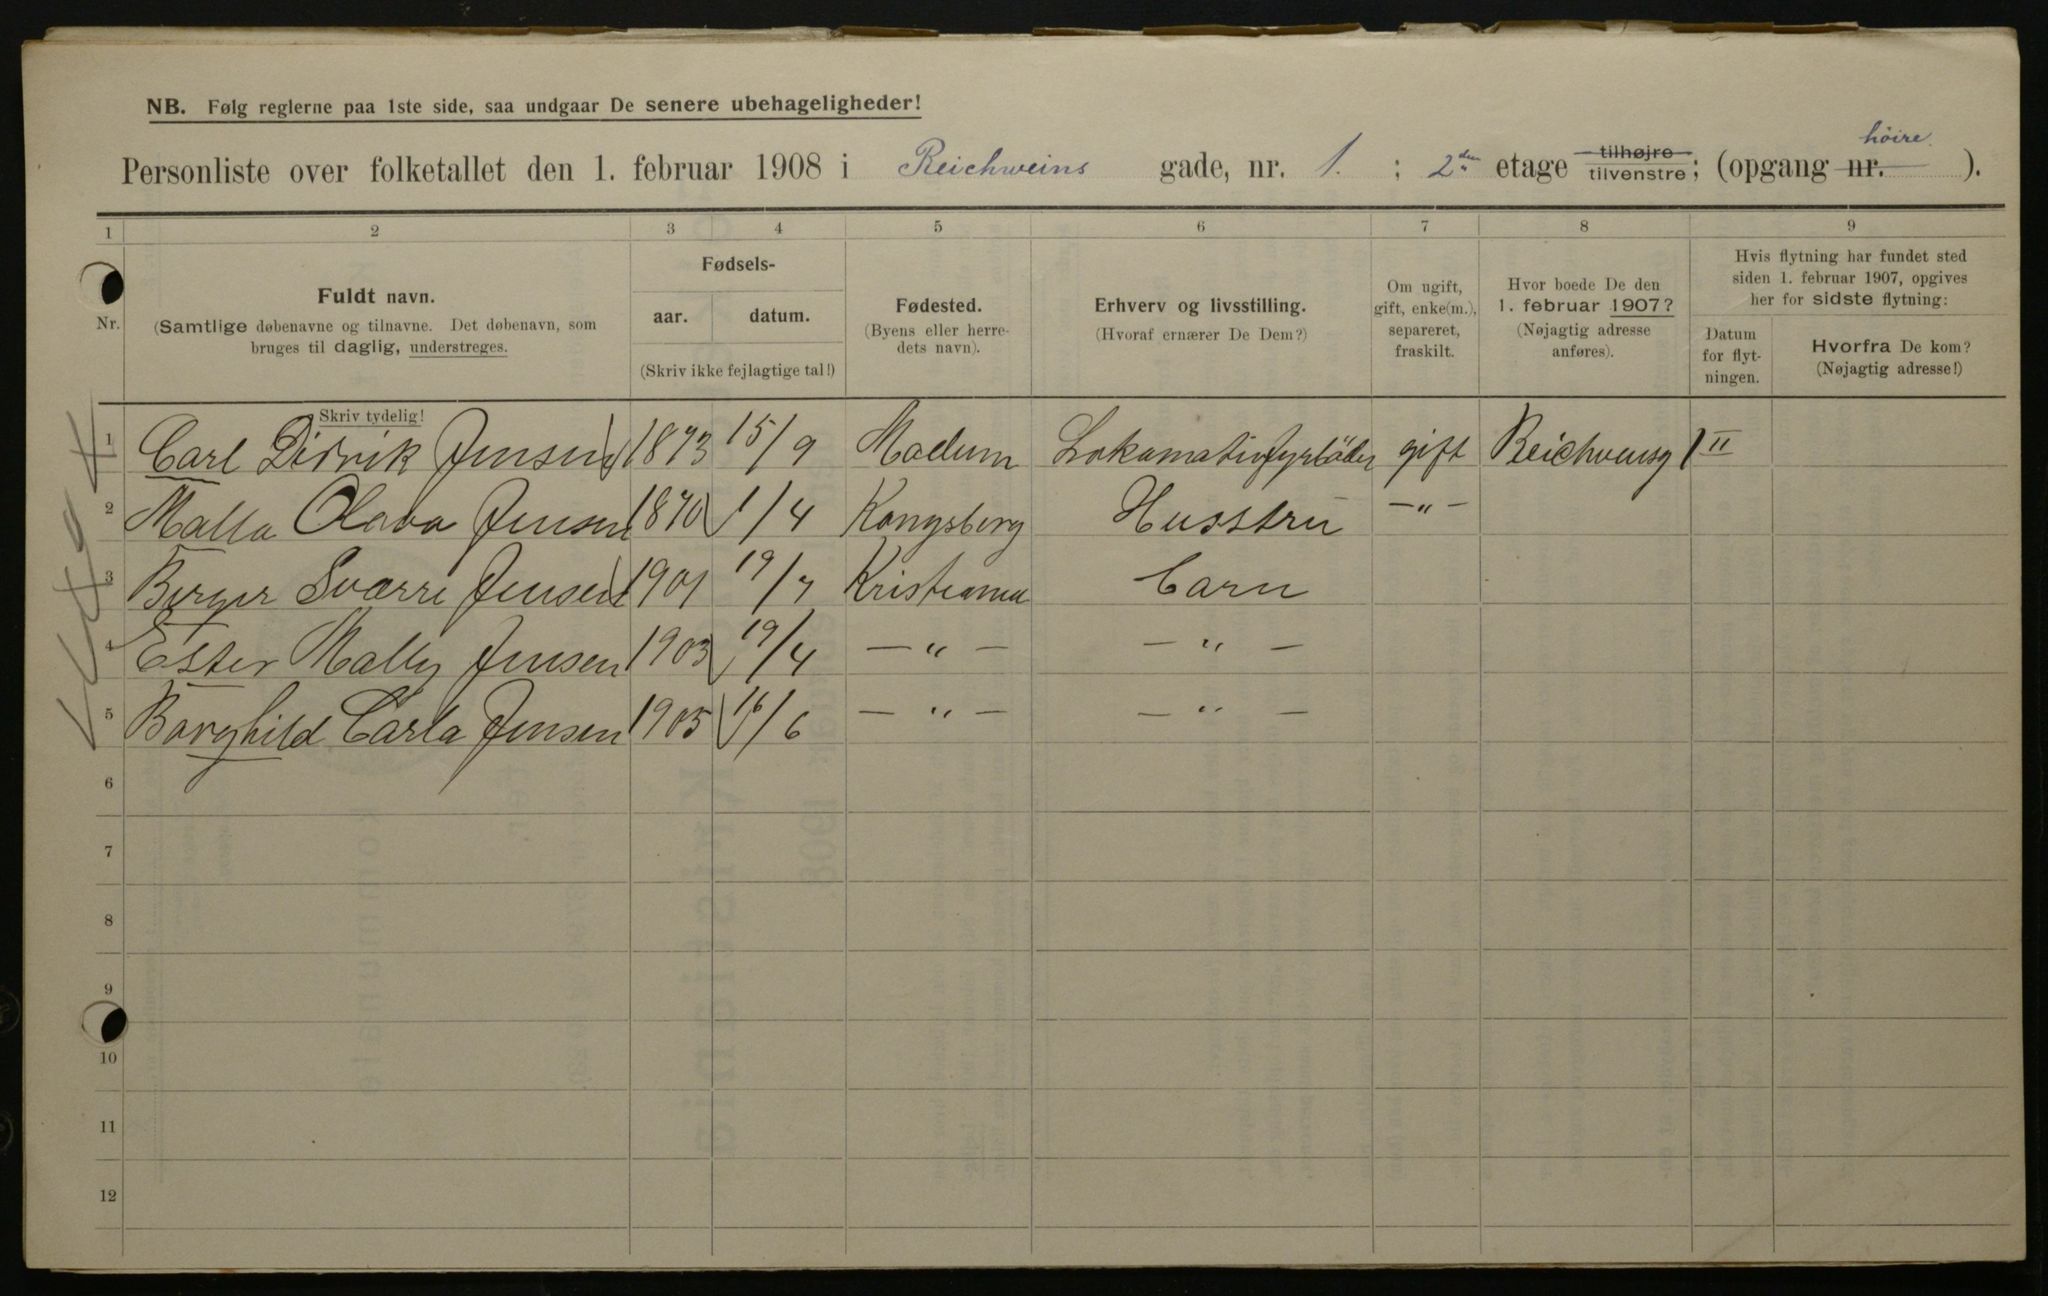 NB. Følg reglerne paa 1ste side, saa undgaar De senere ubehageligheder!
høire
Personliste over folketallet den 1. februar 1908 i Reichweins gade, nr. 1. ; 2den etage tilhøjre tilvenstre; (opgang nr. ).
1 2 3 4 5 6 7 8 9
Nr.
Fuldt navn.
(Samtlige døbenavne og tilnavne. Det døbenavn, som
bruges til daglig, understreges.
Skriv tydelig!
Fødsels-
aar. datum.
(Skriv ikke fejlagtige tal!)
Fødested.
(Byens eller herre-
dets navn).
Erhverv og livsstilling.
(Hvoraf ernærer De Dem?)
Om ugift,
gift, enke(m.),
separeret,
fraskilt.
Hvor boede De den
1. februar 1907?
(Nøjagtig adresse
anføres).
Hvis flytning har fundet sted
siden 1. februar 1907, opgives
her for sidste flytning:
Datum
for flyt-
ningen.
Hvorfra De kom?
(Nøjagtig adresse!)
1 Carl Didrik Jensen 1873 15/9 Modum Lokamativfyrbøder gift Reichvensg 1 II
2 Malla Olava Jensen 1870 1/4 Kongsberg Husstru — " —
3 Birger Sværre Jensen 1901 19/7 Kristiania Barn
4 Ester Mally Jensen 1903 19/4 — " — — " —
5 Borghild Carla Jensen 1905 16/6 — " — — " —
6
7
8
9
10
11
12